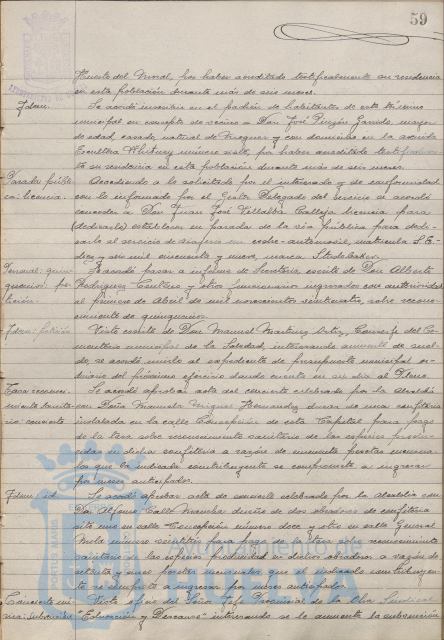 59
Huerta del Moral, por haber acreditado testificalmente su residencia
en esta población durante más de seis meses.
Idem.
Se acordó inscribir en el padrón de habitantes de este término
municipal en concepto de vecino a Don José Pinzón Garrido, mayor
de edad, casado, natural de Moguer y con domicilio en la avenida
Escultora Whitney número siete, por haber acreditado testifical
su residencia en esta población durante más de seis meses.
Parada públi
ca: licencia.
Accediendo a lo solicitado por el interesado y de conformidad
con lo informado por el Gestor Delegado del servicio se acordó
conceder a Don Juan José Villalba Calleja licencia para
(dedicarlo) establecer en parada de la vía pública para dedi-
carlo al servicio de viajeros un coche-automóvil, matrícula
diez y seis mil cincuenta y nueve, marca Studebaker.
Personal: quin-
quenios: pe-
tición.
Se acordó pasar a informe de Secretaría escrito de Don Alberto
Rodríguez y otros funcionarios ingresados con anterioridad
al primero de Abril de mil novecientos veinticuatro, sobre recono-
cimiento de quinquenios.
Idem: petición.
Visto escrito de Don Manuel Martínez Ortiz, Conserje del Ce-
menterio municipal de la Soledad, interesando aumento de suel-
do, se acordó unirlo al expediente de presupuesto municipal or-
dinario del próximo ejercicio dando cuenta en su día al Pleno.
Tasa reconoci-
miento sanita-
rio: concierto
Se acordó aprobar acta del concierto celebrado por la Alcaldía
con Doña Manuela Hernández dueña de una confitería
instalada en la calle Concepción de esta Capital para pago
de la tasa sobre reconocimiento sanitario de las especies produ-
cidas en dicha confitería a razón de cincuenta pesetas mensua-
les que la indicada contribuyente se compromete a ingresar
por meses anticipados.
Idem: id.
Se acordó aprobar acta de concierto celebrado por la Alcaldía con
Don Alfonso Calle Mantilla dueño de dos obradores de confitería
sito uno en calle Concepción número doce y otro en calle General
Mola número veintitrés para pago de la tasa sobre reconocimiento
sanitario de las especies producidas en dichos obradores a razón de
ochenta y cinco pesetas mensuales que el indicado contribuyen-
te se compromete a ingresar por meses anticipados.
Visto oficio del Señor Jefe Provincial de la Obra Sindical
"Educación y Descanso" interesando se le aumente la subvención